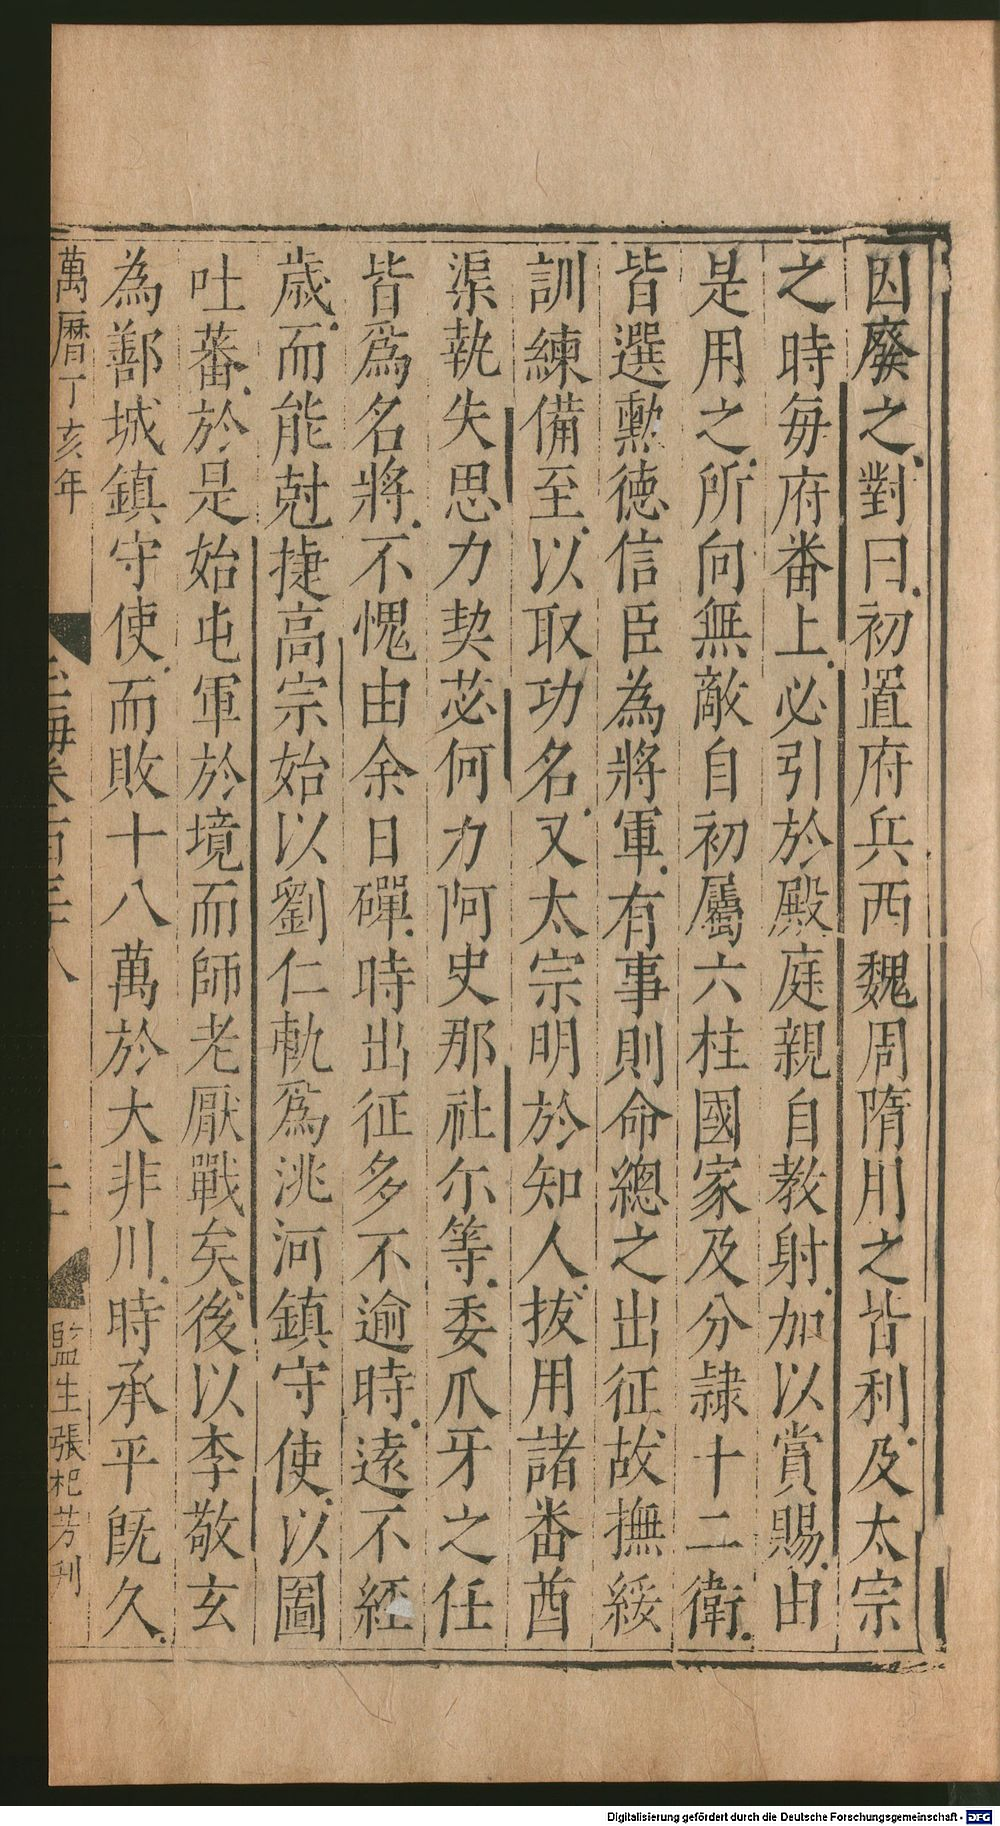 因廢之對曰初置府兵西魏周隋用之皆利及太宗
之時每府番上必引於殿庭親自教射加以賞賜由
是用之所向無敵自初屬六柱國家及分隷十二衛
皆選勲德信臣為將軍有事則命總之出征故撫綏
訓練備至以取功名又太宗明於知人拔用諸番酋
渠執失思力契苾何力阿史那社尒等委爪牙之任
皆爲名將不愧由余日磾時出征多不逾時遠不經
歲而能尅捷高宗始以劉仁軌爲洮河鎮守使以圖
吐蕃於是始屯軍於境而師老厭戰矣後以李敬玄
為鄯城鎮守使而敗十八萬於大非川時承平旣久
萬曆丁亥年
玉海卷百三十八
二十
監生張杞芳刊
Digitalisierung gefördert durch die Deutsche Forschungsgemeinschaft - DFG